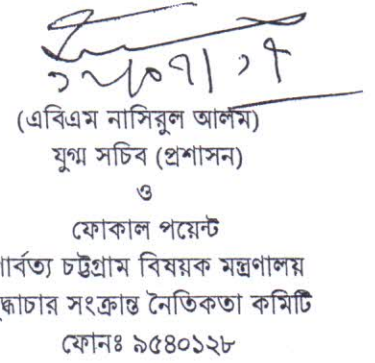 (এবিএম নাসিরুল আলম)
যুগ্ম সচিব (প্রশাসন)
ও
ফোকাল পয়েন্ট
ার্বত্য চট্টগ্রাম বিষয়ক মন্ত্রণালয়
দ্ধাচার সংক্রান্ত নৈতিকতা কমিটি
ফোনঃ ৯৫৪০১২৮